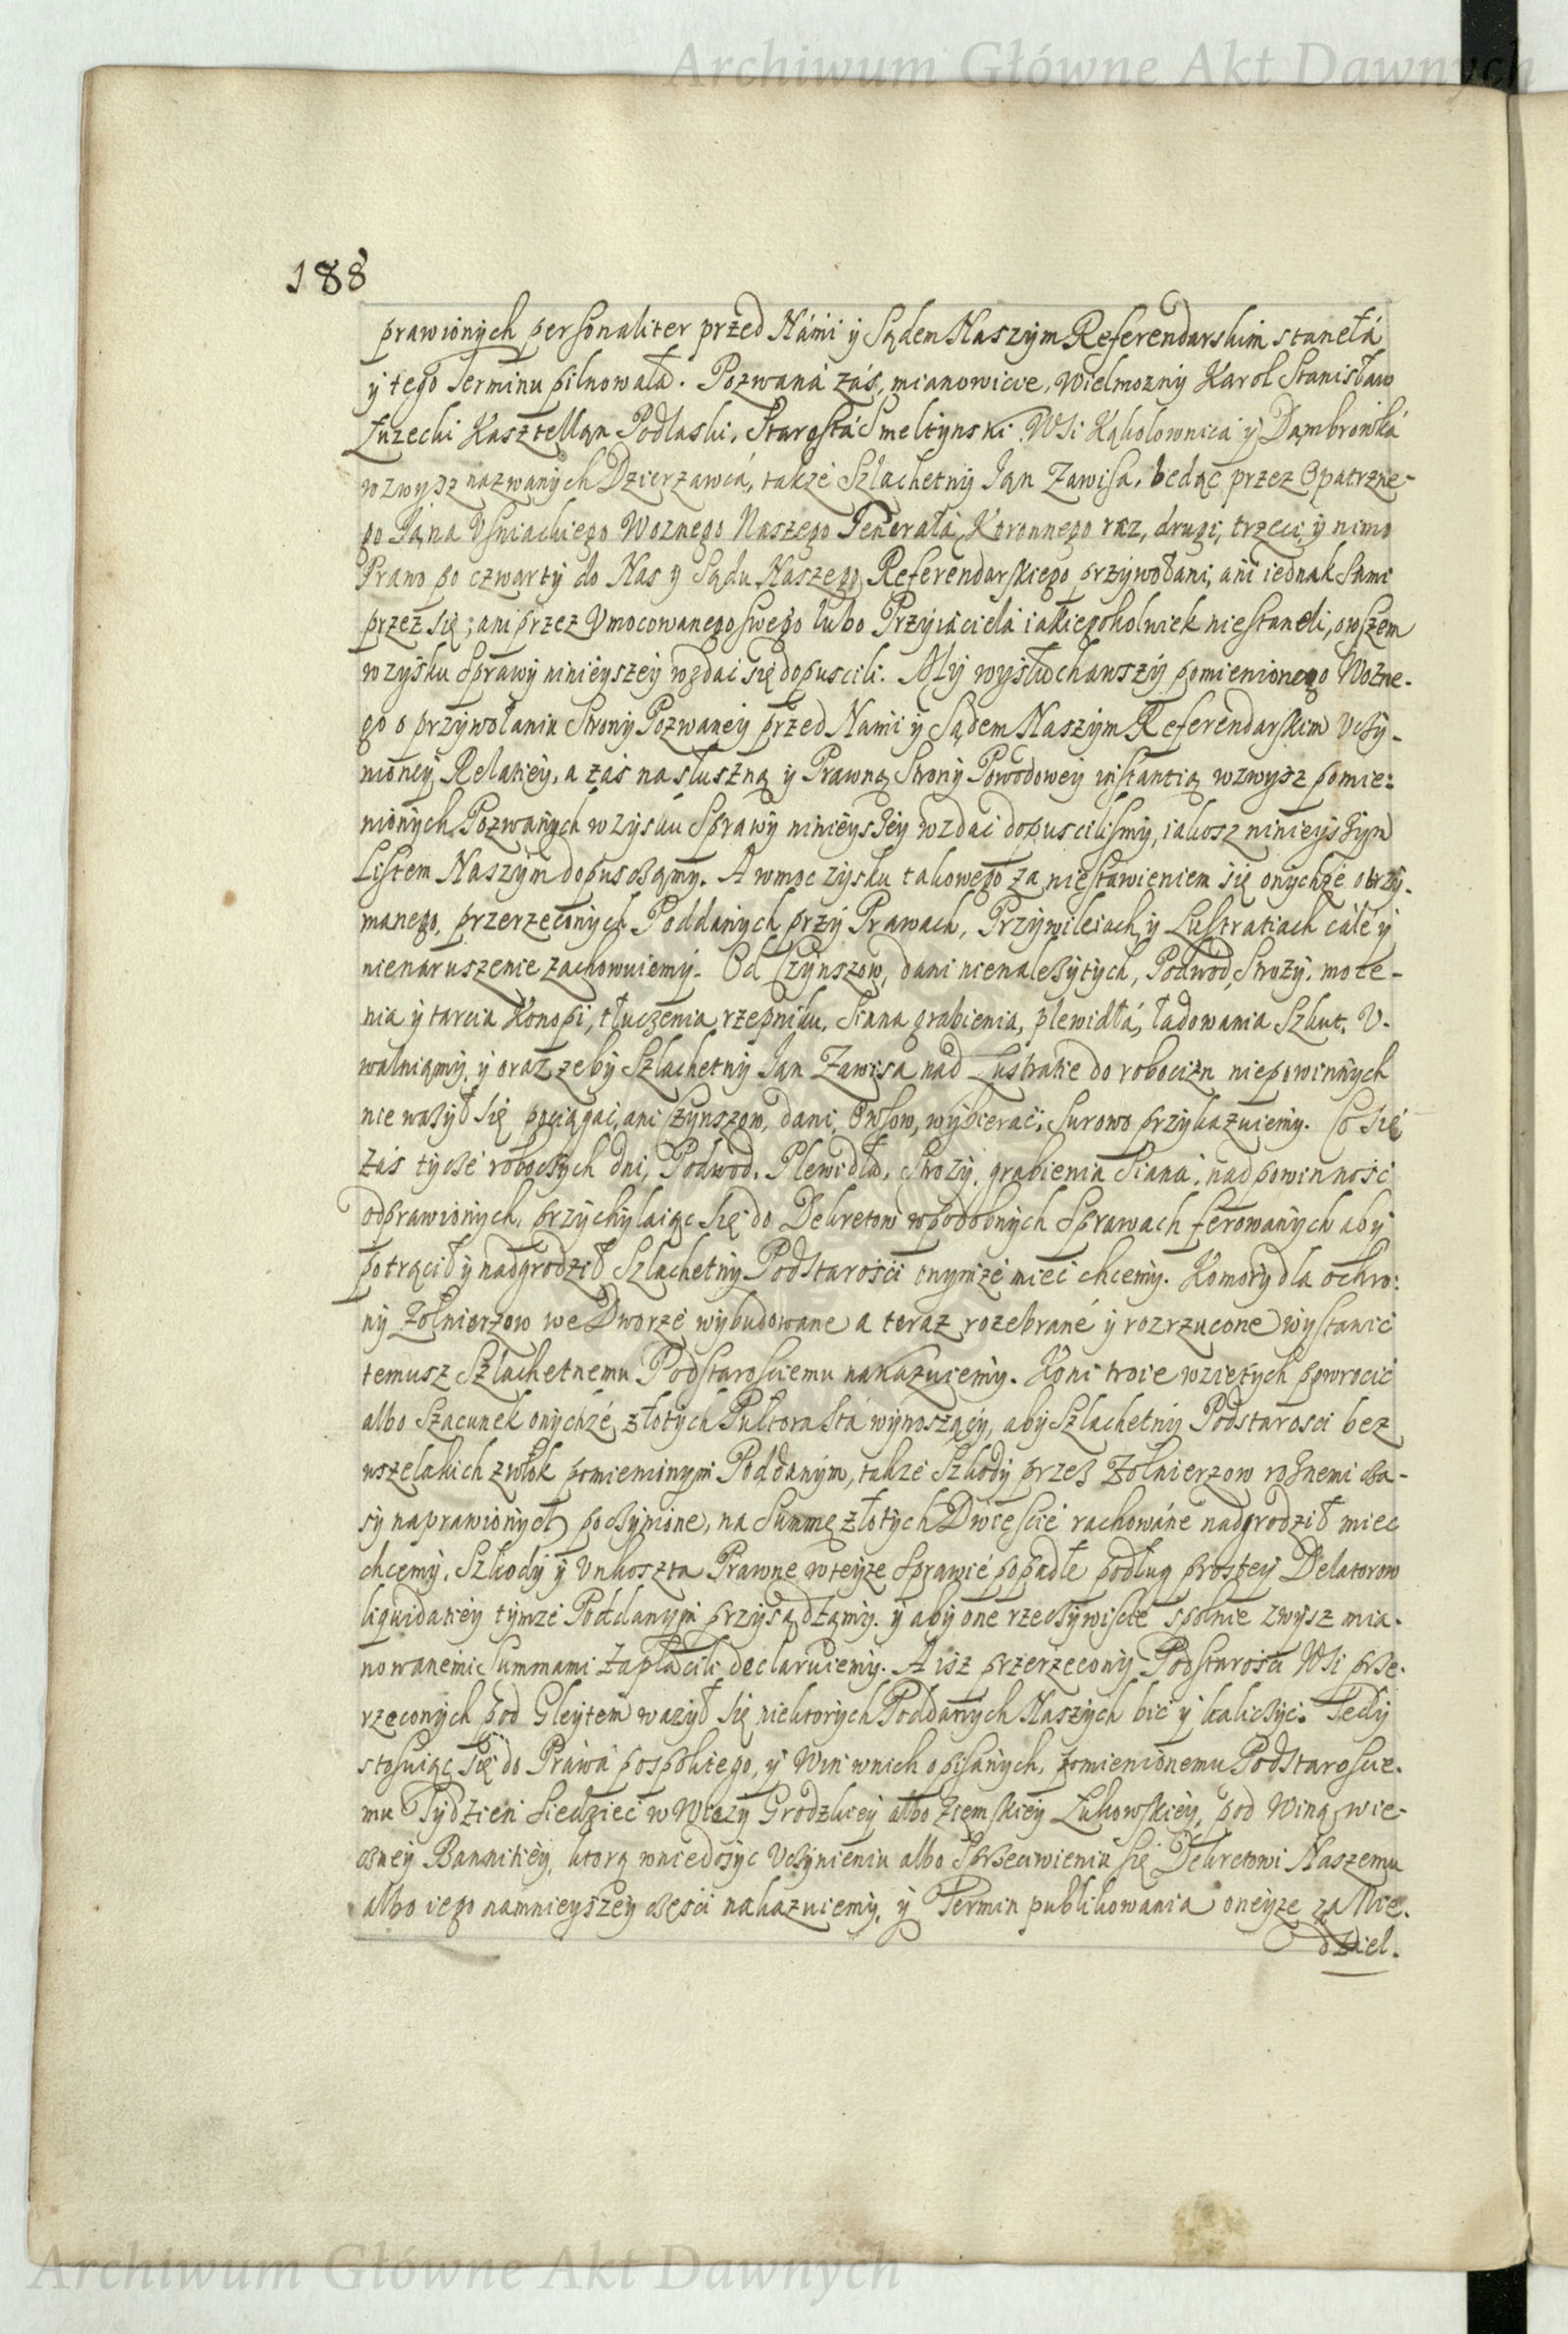 Archiwum Główne Akt Dawnych
188
prawionych personaliter przed Námi y Sądem Naszym Referendarskim stanełá
y tego Terminu pilnowała. Pozwaná záś, mianowicie, Wielmozny Karol Stanisław
Łuzecki Kasztellan Podlaski, Starostá Smeltynski Wsi Kąkolownica y Dąmbrowká
wzwysz nazwanych Dzierzawcá, także Szlachetny Ian Zawisa, będąc przez Opatrzne-
go Iana Vśniackiego Woznego Naszego Generałá Koronnego raz, drugi, trzeci, y nimo
Prawo po czwarty do Nas y Sądu Naszego Referendarskiego przywołani, ani iednak sami
przez się; ani przez Vmocowanego swego lubo Przyiacielá iakiegokolwiek niestaneli, owszem
wzysku Sprawy ninieyszey wzdać się dopuscili. My wysłuchawszy pomienionego Wozne-
go o przywołaniu Strony Pozwaney przed Nami y Sądem Naszym Referendarskim vczy-
nioney Relatiey, a záś na słuszną y Prawną Strony Powodowey instantią wzwysz pomie-
nionych Pozwanych w zysku Sprawy ninieyszey wzdać dopuscilismy, iakosz ninieyszym
Listem Naszym dopusczamy. A wmoc zysku takowego za niestawieniem się onychże otrzy-
manego, przerzeczonych Poddanych przy Prawach, Przywileiach y Lustratiach cále y
nienaruszenie zachowuiemy. Od Czynszow, dani nienależytych, Podwod, Strozy, mocze-
nia y tarcia Konopi, tłuczenia rzepniku, Siana grabienia, plewidłá, ładowania Szkut, V-
walniamy, y oraz zeby Szlachetny Ian Zawisa nad Lustratie do robocizn niepowinnych
nie ważył się pociągać, ani czynszow, dani, Owsow, wybierać, Surowo przykazuiemy. Co się
záś tycze roboczych dni, Podwod, Plewidłá, Strozy, grabienia Siana, nad powinność
odprawionych, przychylaiąc się do Dekretow wpodobnych Sprawach ferowanych aby
potrącił y nadgrodził Szlachetny Podstarości onymże mieć chcemy. Komory dla ochro-
ny Zołnierzow we Dworze wybudowane a teraz rozebrane y rozrzucone wystawić
temusz Szlachetnemu Podstarosciemu nakazuiemy. Koni troie wzietych powrocić
albo Szacunek onychże, złotych Pułtora stá wynoszący, aby Szlachetny Podstarosci bez
wszelakich zwłok pomienionym Poddanym, także Szkody przez Zołnierzow roznemi cza-
sy naprawionych poczynione, na Summę złotych Dwieście rachowáne nadgrodził miec
chcemy. Szkody y Vnkoszta Prawne wteyże Sprawie popadłe podług prostey Delatorow
liquidatiey tymże Poddanym przysądzamy. y aby one rzeczywiście spolnie zwysz mia-
nowanemi Summami zapłacili declaruiemy. A isz przerzeczony Podstarości Wsi prze-
rzeczonych pod Gleytem ważył się niektorych Poddanych Naszych bić y kaliczyć. Tedy
stosuiąc się do Práwa pospolitego, y Win wnich opisanych, pomienionemu Podstaroscie-
mu Tydzień siedzieć w Wiezy Grodzkiey albo Ziemskiey Łukowskiey, pod Winą wie-
czney Bannitiey, ktorą wniedosyc Vczynieniu albo Sprzeciwieniu się Dekretowi Naszemu
albo iego namnieyszey części nakazuiemy, y Termin publikowania oneyze za Nie-
dziel.
Archiwum Główne Akt Dawnych